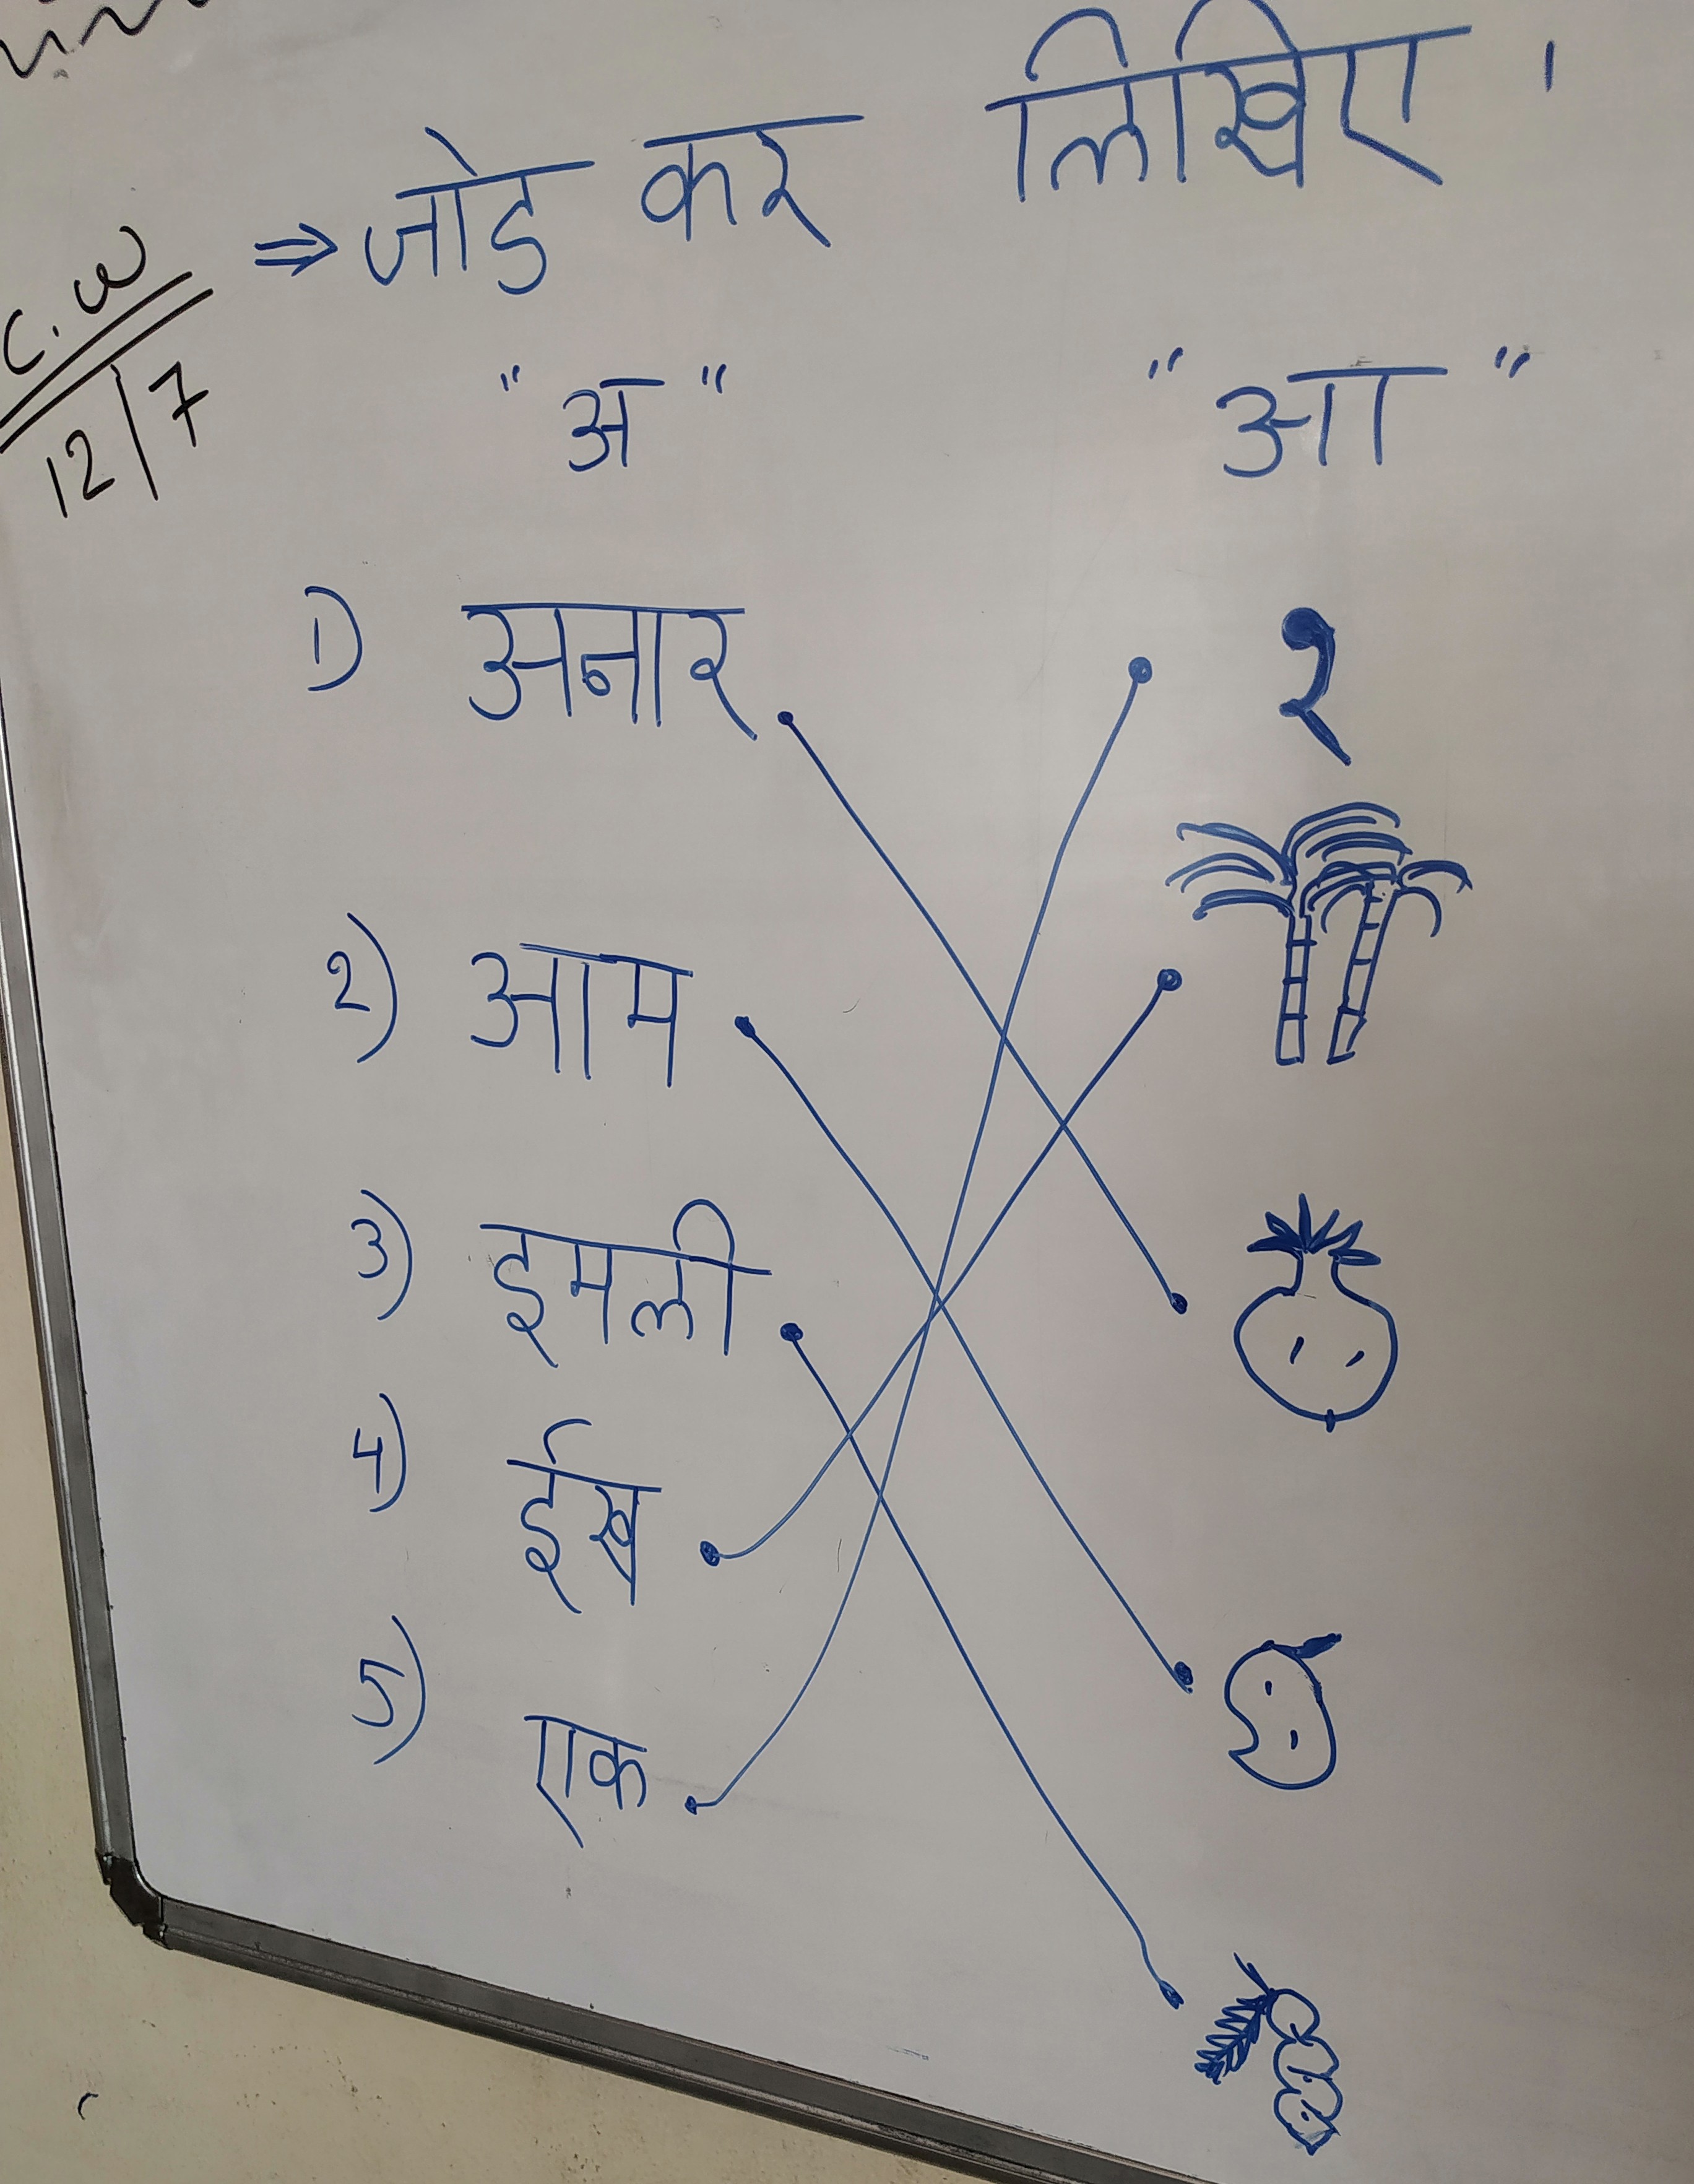 ⇒ जोड कर लिखिए ।
C.W
12/7
"अ" "आ"
1) अनार १
2) आम
3) इमली
4) ईख
5) एक